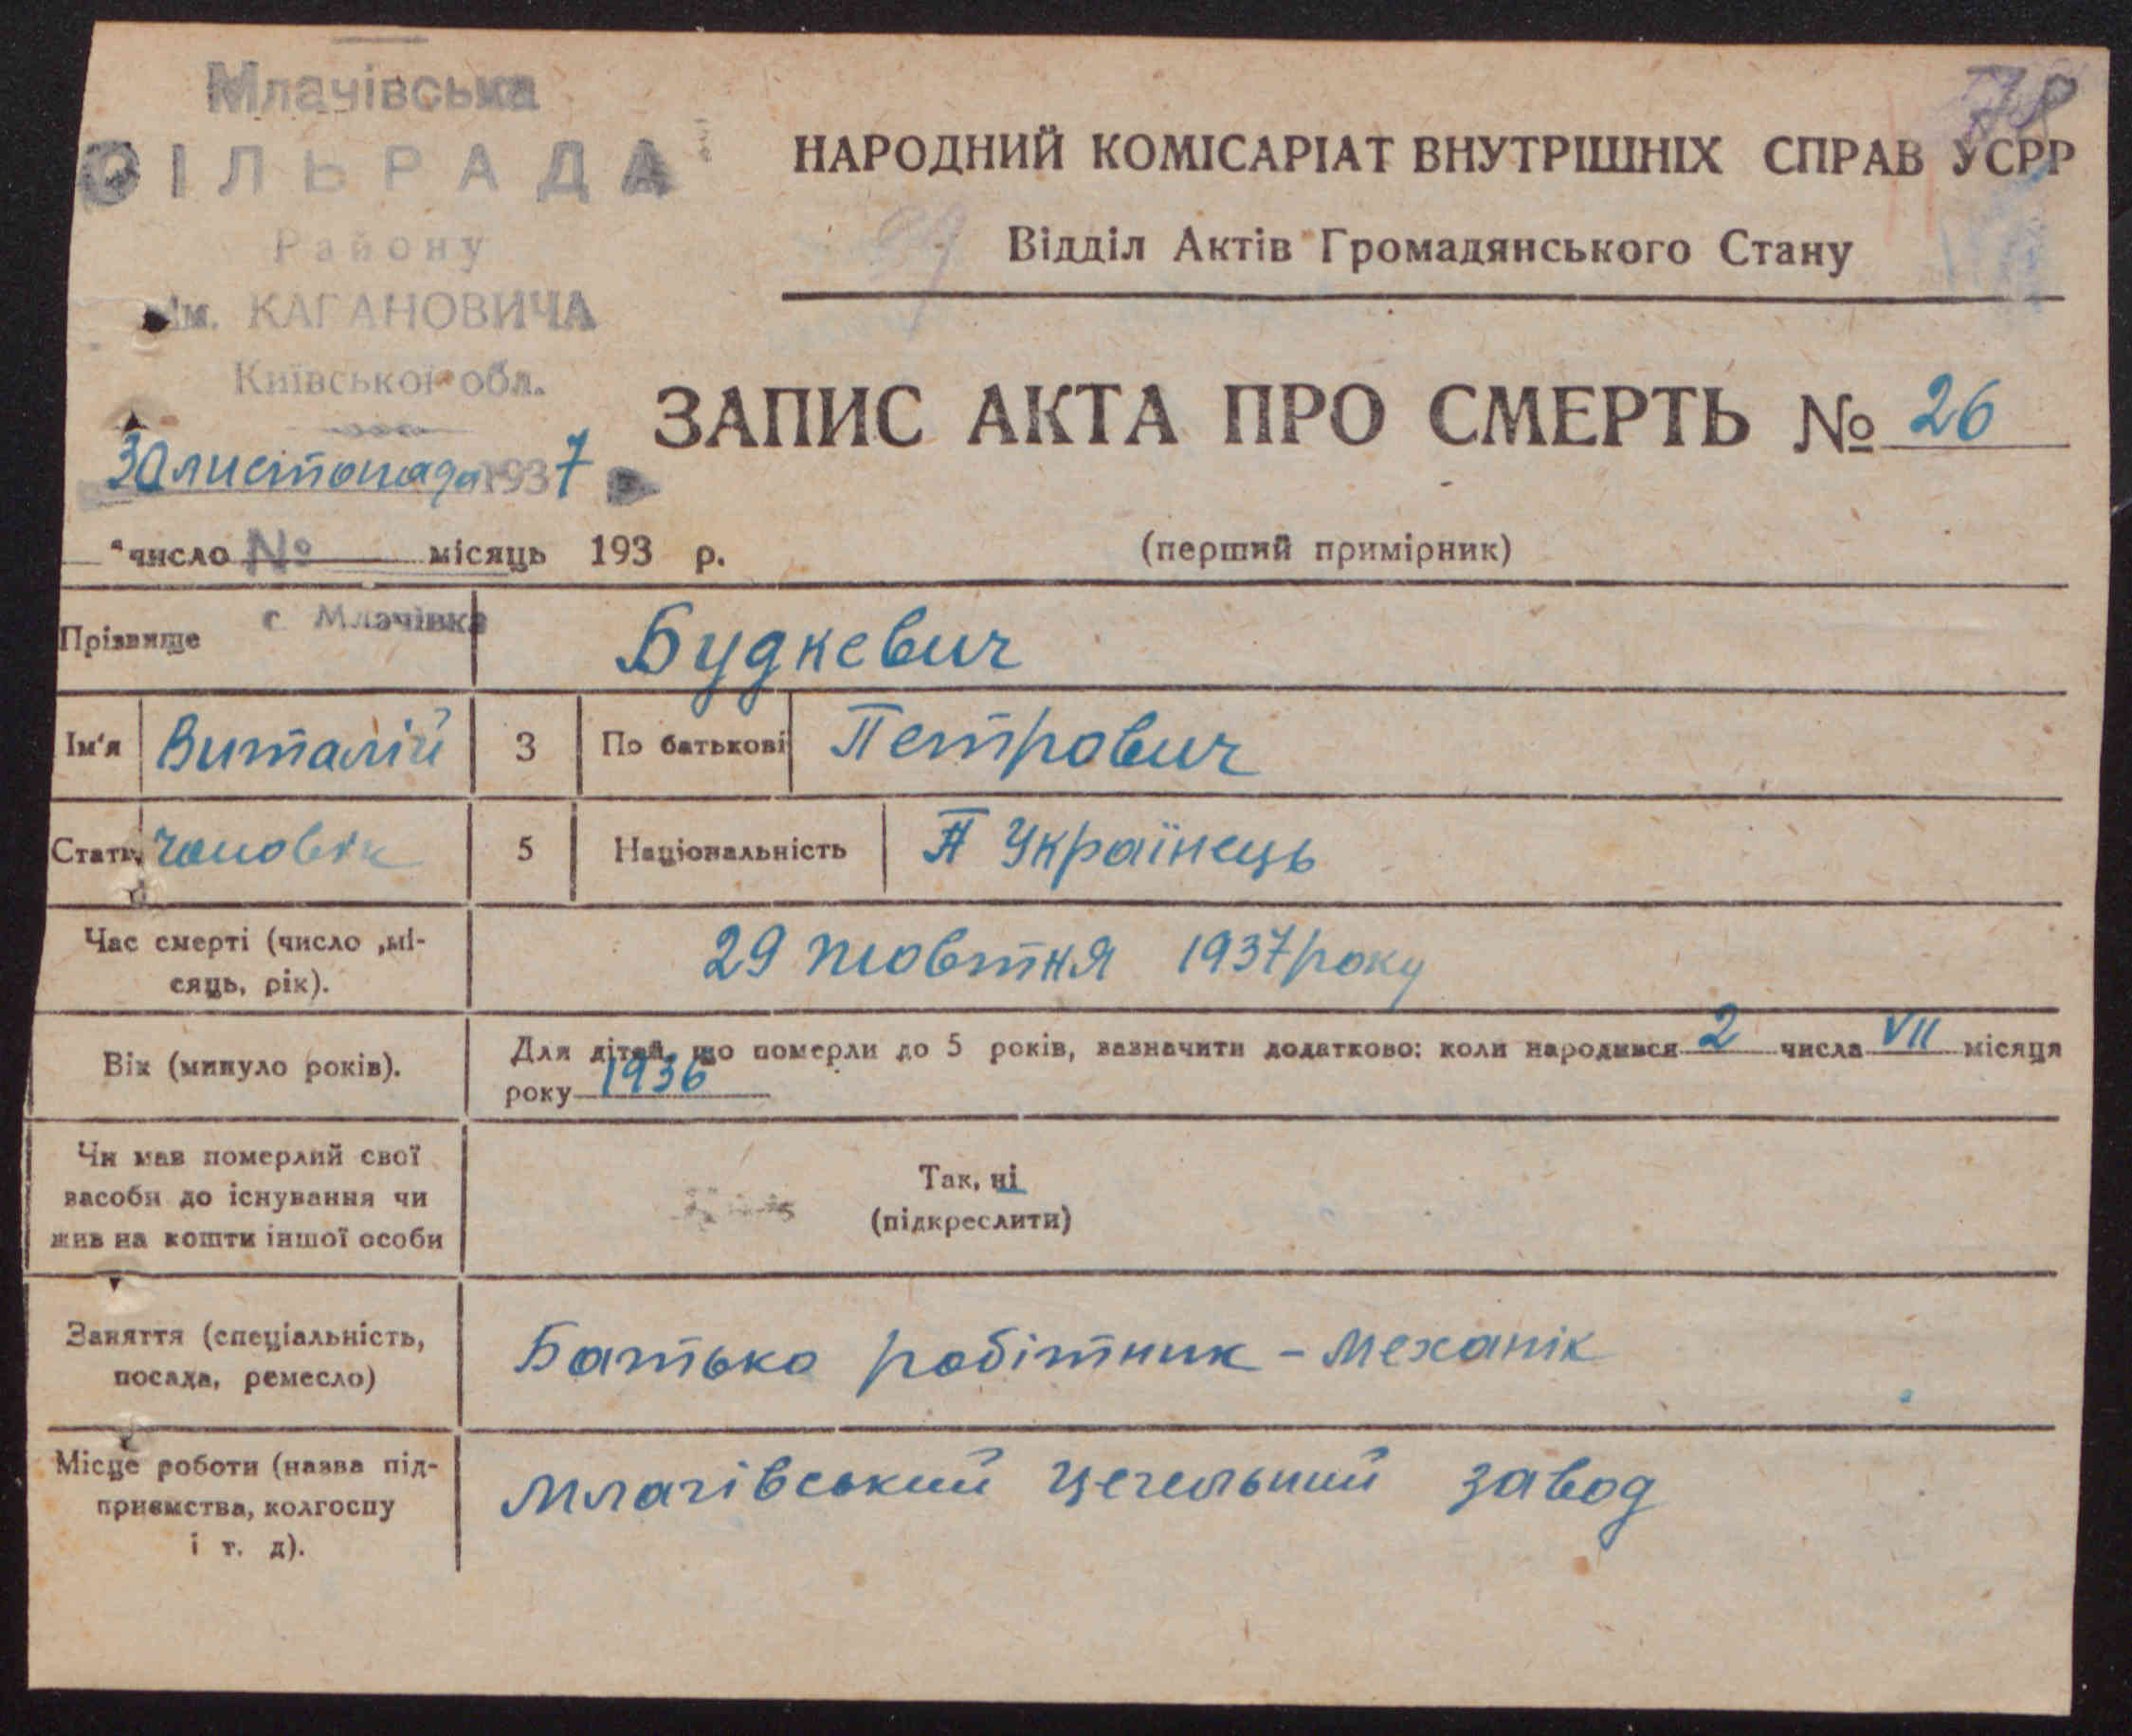 Млачівська
СІЛЬРАДА
Району
ім. КАГАНОВИЧА
Київської обл.
листопада 1937
78
НАРОДНИЙ КОМІСАРІАТ ВНУТРІШНІХ СПРАВ УСРР
Відділ Актів Громадянського Стану
ЗАПИС АКТА ПРО СМЕРТЬ № 26
число № місяць 193 р.
(перший примірник)
с Млачівка
Прізвище Будкевич
Ім'я Виталій 3 По батькові Петрович
Стать чоловік 5 Національність Українець
Час смерті (число ,мі-
сяць, рік).
29 жовтня 1937 року
Вік (минуло років).
Для дітей, що померли до 5 років, зазначити додатково: коли народився 2 числа VII місяця
року 1936
Чи мав померлий свої
засоби до існування чи
жив на кошти іншої особи
Так, ні
(підкреслити)
Заняття (спеціальність,
посада, ремесло)
Батько робітник - механік
Місце роботи (назва під-
приємства, колгоспу
і т. д).
Млачівський цегельний завод